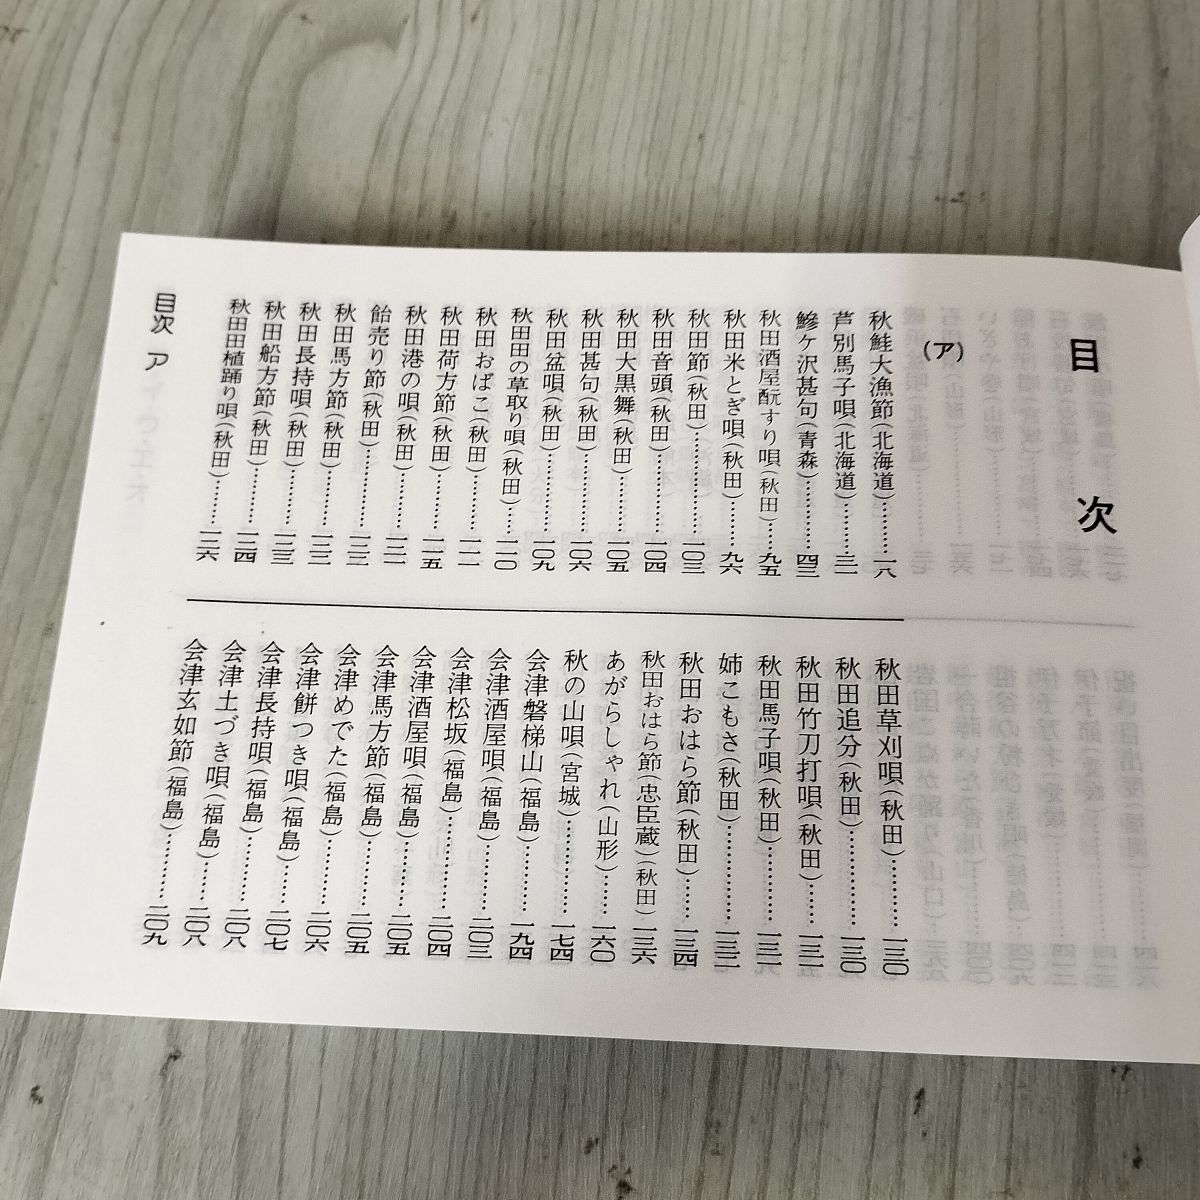 目次
(ア)
秋鮭大漁節(北海道)………一八
芦別馬子唄(北海道)………三一
鰺ケ沢甚句(青森)………四三
秋田酒屋酛すり唄(秋田)……九五
秋田米とぎ唄(秋田)………九六
秋田節(秋田)………一〇三
秋田音頭(秋田)………一〇四
秋田大黒舞(秋田)………一〇五
秋田甚句(秋田)………一〇六
秋田盆唄(秋田)………一〇九
秋田田の草取り唄(秋田)……一一〇
秋田おばこ(秋田)………一一一
秋田荷方節(秋田)………一一五
秋田港の唄(秋田)………一二一
飴売り節(秋田)………一二二
秋田馬方節(秋田)………一二二
秋田長持唄(秋田)………一二三
秋田船方節(秋田)………一二四
秋田田植踊り唄(秋田)………一二六
秋田草刈唄(秋田)………一三〇
秋田追分(秋田)………一三〇
秋田竹刀打唄(秋田)……一三一
秋田馬子唄(秋田)………一三一
姉こもさ(秋田)………一三二
秋田おはら節(秋田)……一三四
秋田おはら節(忠臣蔵)(秋田)…一三六
あがらしゃれ(山形)……一六〇
秋の山唄(宮城)………一七四
会津磐梯山(福島)………一九四
会津酒屋唄(福島)………二〇三
会津松坂(福島)………二〇四
会津酒屋唄(福島)………二〇五
会津馬方節(福島)………二〇五
会津めでた(福島)………二〇六
会津餅つき唄(福島)……二〇七
会津長持唄(福島)………二〇八
会津土づき唄(福島)……二〇八
会津玄如節(福島)………二〇九
目次 ア